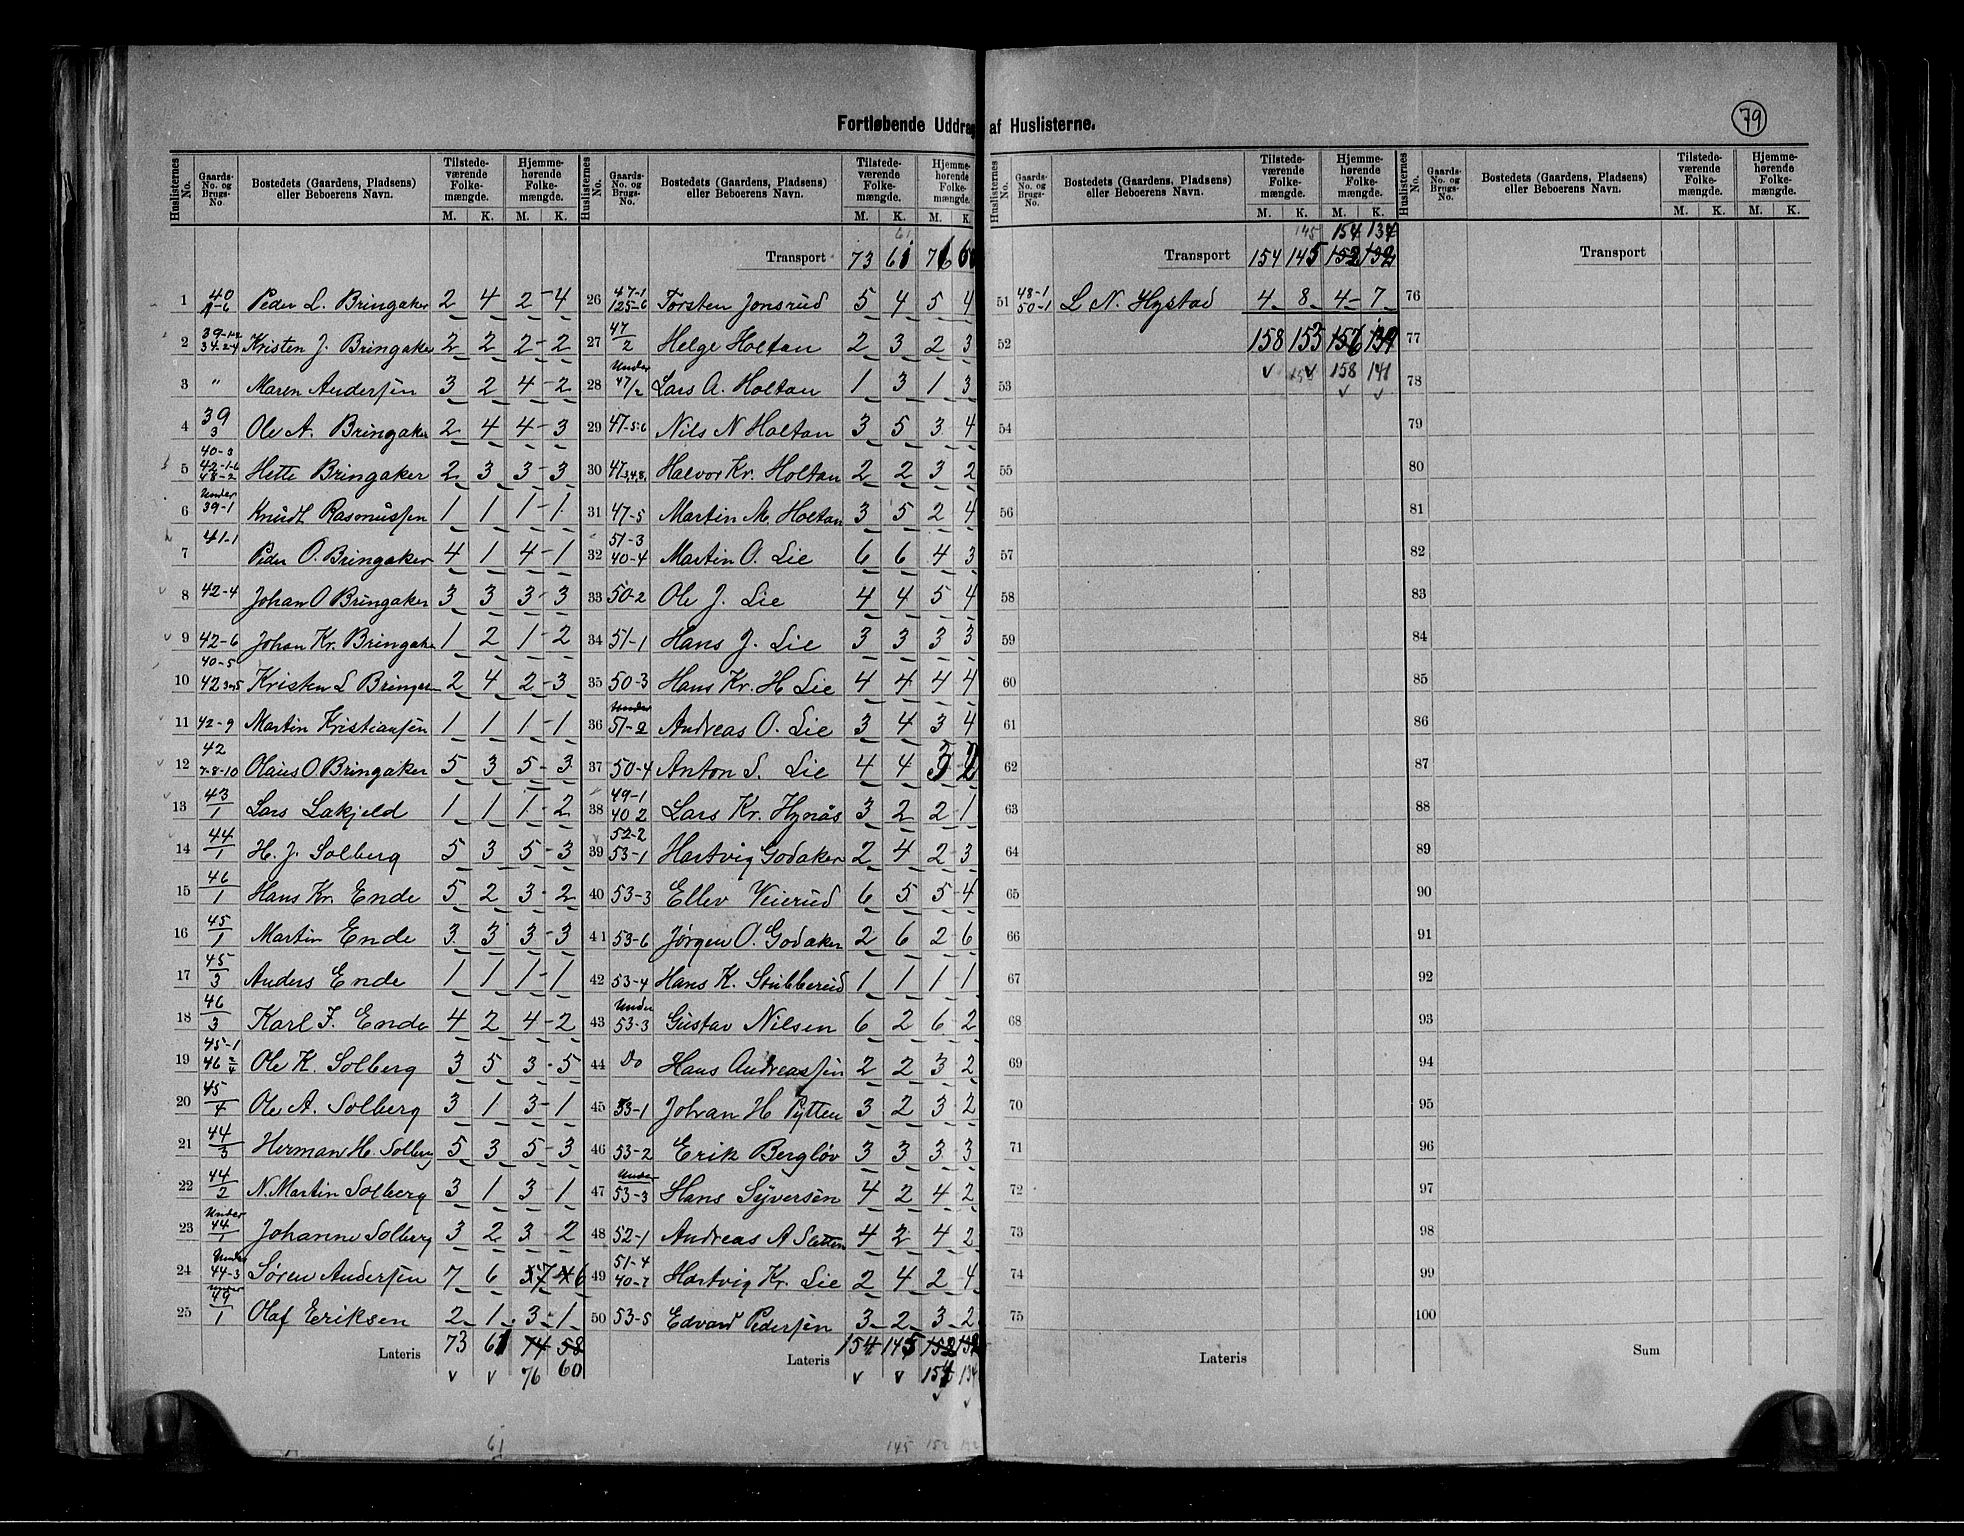 79
Fortløbende Uddrag af Huslisterne.
Huslisternes No. Gaards-No. og Brugs-No. Bostedets (Gaardens, Pladsens) eller Beboerens Navn. Tilstedeværende Folkemængde. M. K. Hjemmehørende Folkemængde. M. K.
1 40 1-6 Peder L. Bringaker 2 4 2-4
2 39-1-2 34-2-4 Kristen J. Bringaker 2 2 2-2
3 " Maren Andersen 3 2 4-2
4 39 3 Ole A. Bringaker 2 4 4-3
5 40-3 42-1-6 48-2 Hette Bringaker 2 3 3-3
6 Under 39-1 Knudt Rasmussen 1 1 1-1
7 41-1 Peder O. Bringaker 4 1 4-1
8 42-4 Johan O Bringaker 3 3 3-3
9 42-6 Johan Kr. Bringaker 1 2 1-2
10 40-5 42 3 Kristen L Bringer 2 4 2-3
11 42-9 Martin Kristiansen 1 1 1-1
12 42 7-8-10 Olaus O. Bringaker 5 3 5-3
13 43/1 Lars Lakjeld 1 1 1-2
14 44/1 H. J. Solberg 5 3 5-3
15 46/1 Hans Kr. Ende 5 2 3-2
16 45/1 Martin Ende 3 3 3-3
17 45/3 Anders Ende 1 1 1-1
18 46/3 Karl J. Ende 4 2 4-2
19 45-1 46 2/4 Ole K. Solberg 3 5 3-5
20 45/4 Ole A. Solberg 3 1 3-1
21 44/3 Herman H. Solberg 5 3 5-3
22 44/2 N. Martin Solberg 3 1 3-1
23 Under 44/1 Johanne Solberg 3 2 3-2
24 Under 44-3 Søren Andersen 7 6 7 6
25 Under 49/1 Olaf Eriksen 2 1 3-1
Lateris 73 61 74 58
76 60
61
Huslisternes No. Gaards-No. og Brugs-No. Bostedets (Gaardens, Pladsens) eller Beboerens Navn. Tilstedeværende Folkemængde. M. K. Hjemmehørende Folkemængde. M. K.
61
Transport 73 61 76 60
26 47-1 125-6 Torsten Jonsrud 5 4 5 4
27 47/2 Helge Holtan 2 3 2 3
28 Under 47/2 Lars A. Holtan 1 3 1 3
29 47-5-6 Nils N Holtan 3 5 3 4
30 47 3,4,8, Halvor Kr. Holtan 2 2 3 2
31 47-5 Martin M. Holtan 3 5 2 4
32 51-3 40-4 Martin O. Lie 6 6 4 3
33 50-2 Ole J. Lie 4 4 5 4
34 51-1 Hans J. Lie 3 3 3 3
35 50-3 Hans Kr. H Lie 4 4 4 4
36 Under 51-2 Andreas O. Lie 3 4 3 4
37 50-4 Anton L. Lie 4 4 3 2
38 49-1 40 2 Lars Kr. Hynås 3 2 2 1
39 52-2 53-1 Hartvig Godaker 2 4 2-3
40 53-3 Ellev Veierud 6 5 5 4
41 53-6 Jørgen O. Godaker 2 6 2 6
42 53-4 Hans K. Stubberud 1 1 1-1
43 Under 53-3 Gustav Nilsen 6 2 6-2
44 Do Hans Andreassen 2 2 3 2
45 53-1 Johan H Pytten 3 2 3-2
46 53-2 Erik Bergløv 3 3 3 3
47 Under 53-3 Hans Syversen 4 2 4 2
48 52-1 Andreas A Sletten 4 2 4 2
49 51-4 40-7 Hartvig Kr. Lie 2 4 2 4
50 53-5 Edvard Pedersen 3 2 3-2
Lateris 154 145 152 132
154 134
145 152 132
Huslisternes No. Gaards-No. og Brugs-No. Bostedets (Gaardens, Pladsens) eller Beboerens Navn. Tilstedeværende Folkemængde. M. K. Hjemmehørende Folkemængde. M. K.
145 154 134
Transport 154 145 152 132
51 48-1 50-1 L. N. Hystad 4 8 4 7
52 158 153 156 139
53 153 158 141
54
55
56
57
58
59
60
61
62
63
64
65
66
67
68
69
70
71
72
73
74
75
Lateris
Huslisternes No. Gaards-No. og Brugs-No. Bostedets (Gaardens, Pladsens) eller Beboerens Navn. Tilstedeværende Folkemængde. M. K. Hjemmehørende Folkemængde. M. K.
Transport
76
77
78
79
80
81
82
83
84
85
86
87
88
89
90
91
92
93
94
95
96
97
98
99
100
Sum